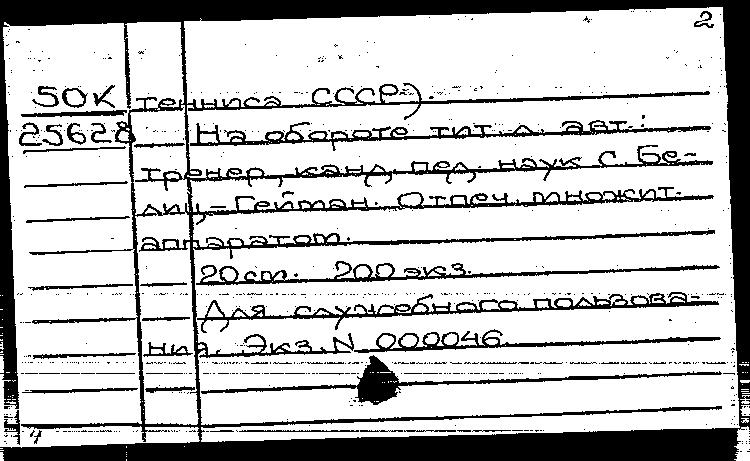 2
50К тенниса СССР).
25628 На обороте тит. л. авт.:
тренер, канд. пед. наук С. Бе-
лиц-Гейман. Отпеч. множит.
аппаратом.
20 см. 200 экз.
Для служебного пользова-
ния. Экз. N 000046.
4